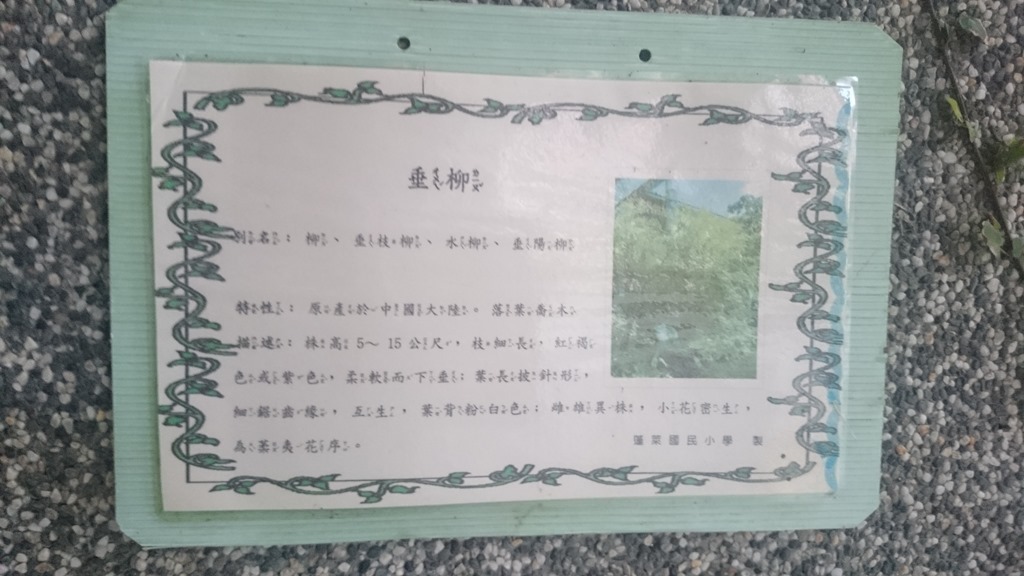 垂柳
別名：柳、垂枝柳、水柳、垂陽柳
特性：原產於中國大陸。落葉喬木
描述：株高5～15公尺，枝細長，紅褐
色或紫色，柔軟而下垂；葉長披針形，
細鋸齒緣，互生，葉背粉白色；雌雄異株，小花密生，
為葇荑花序。
蓬萊國民小學 製